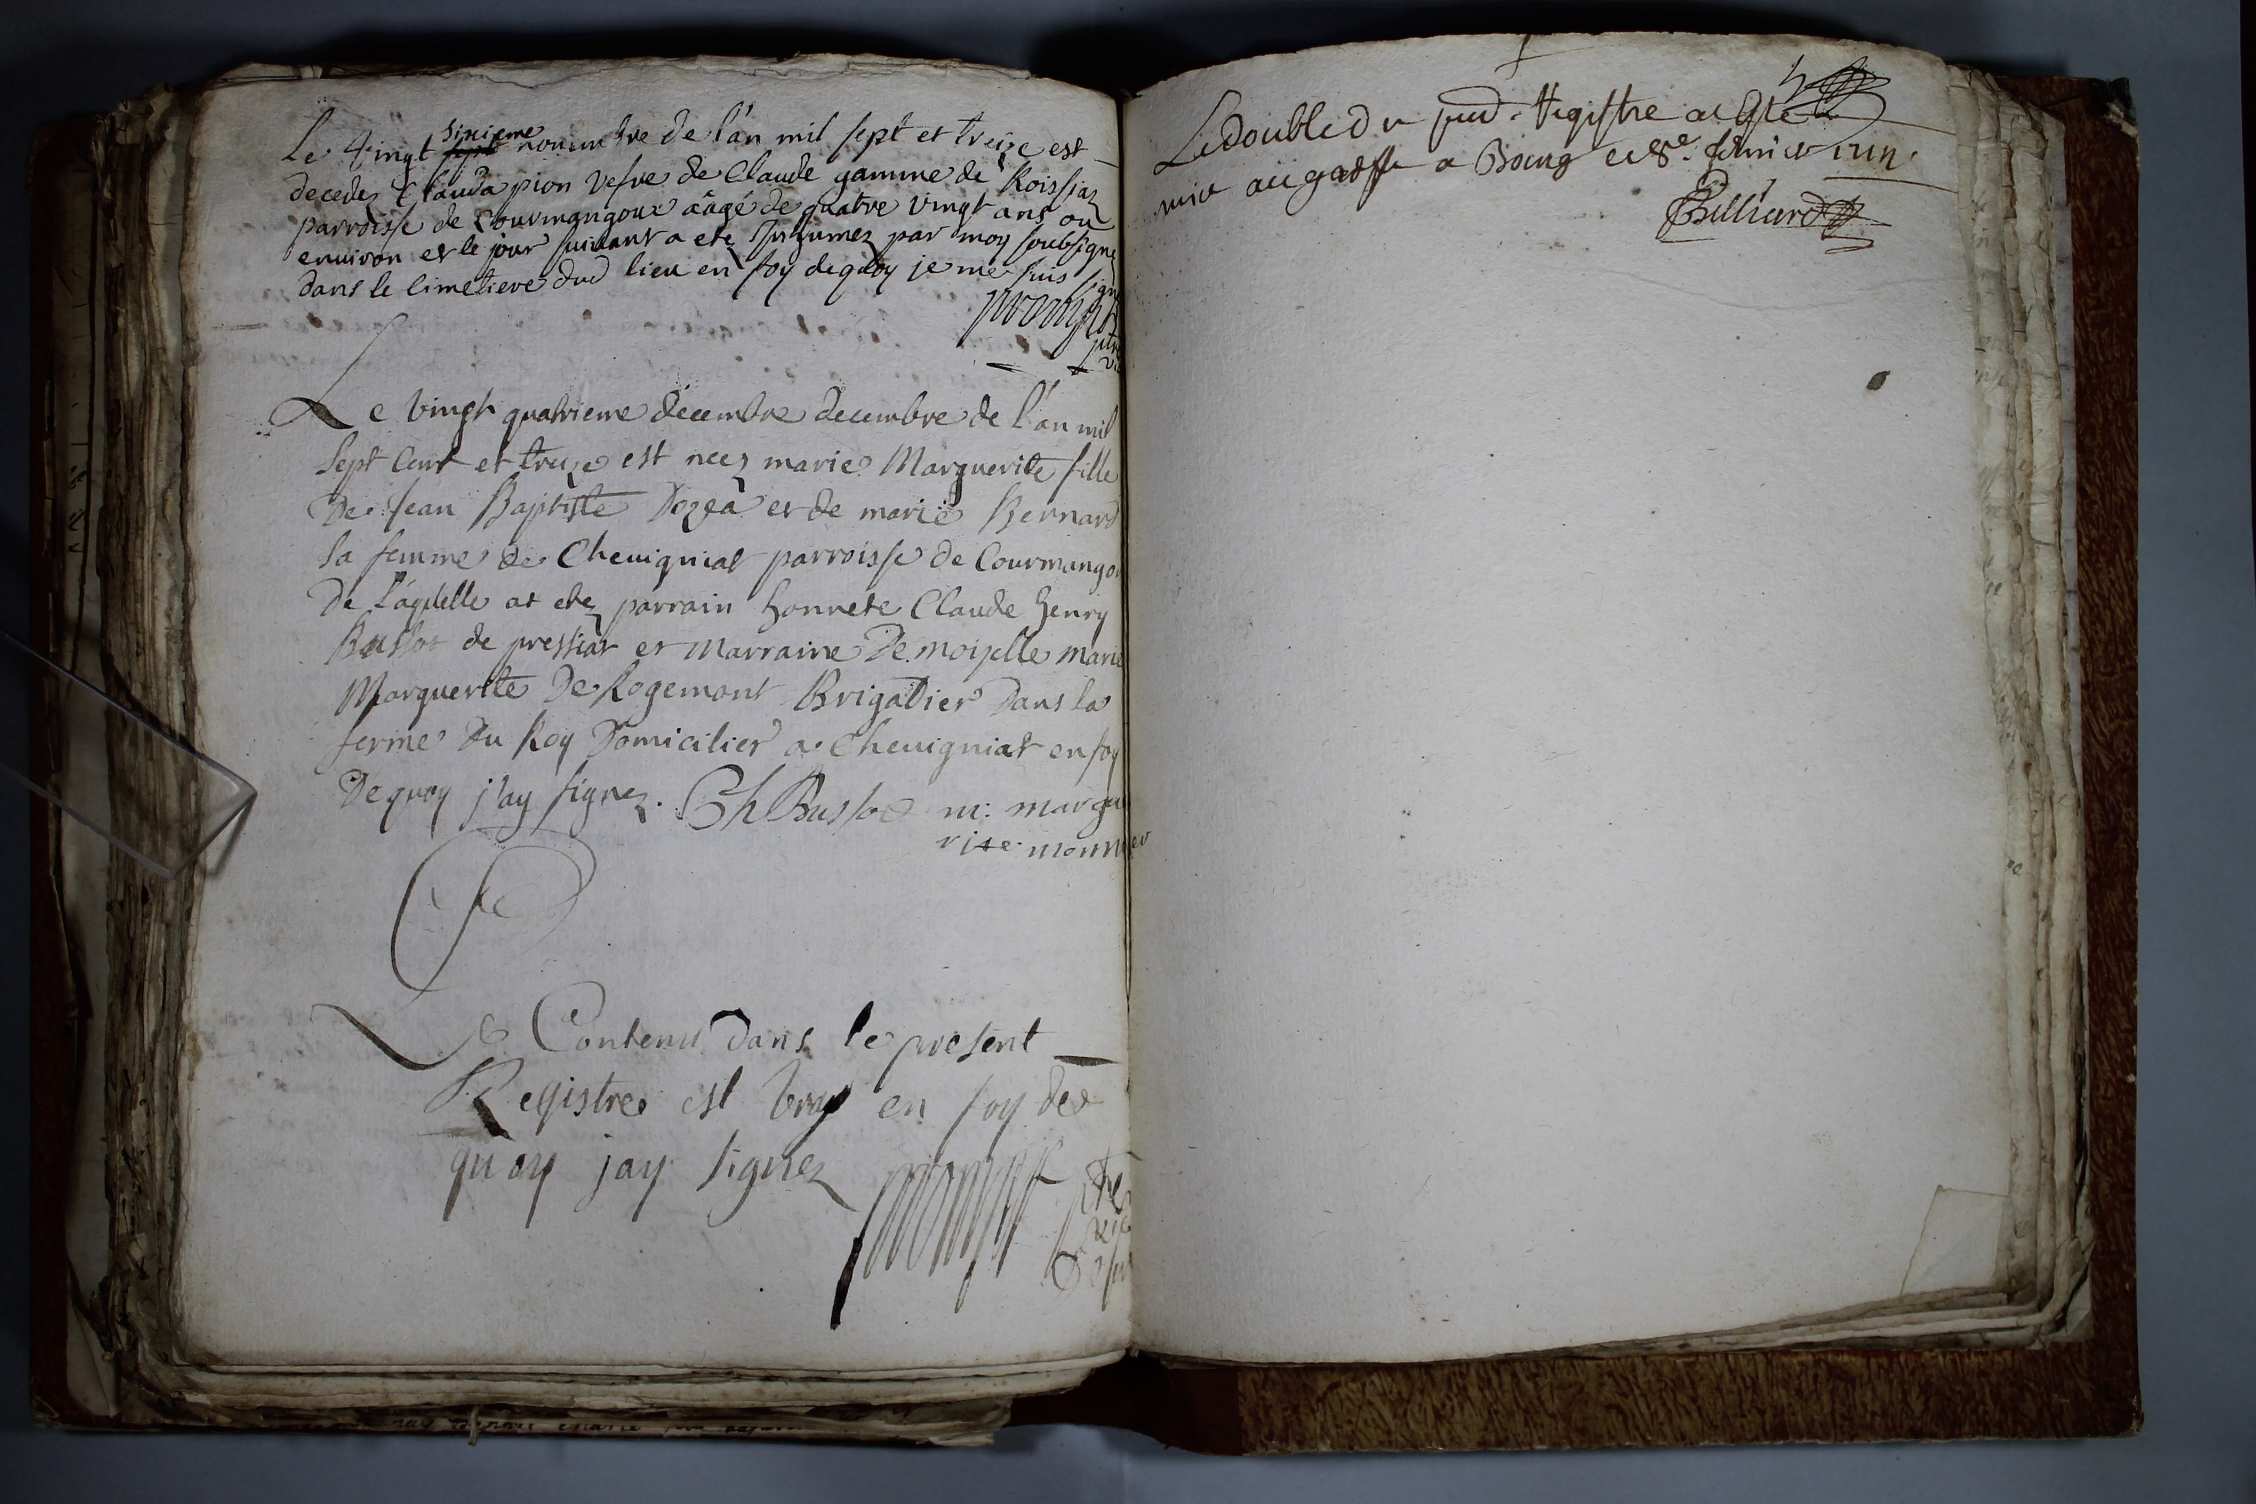 Le vingt sixieme novembre de l'an mil sept et treize est
decedez Clauda pion vefve de Claude gamme de Roissiaz
parroisse de Courmangoux aâgé de quatre vingt ans ou
environ et le jour suivant a etez inhumez par moy soubsigne
dans le cimetiere dud lieu en foy dequoy je me suis signe
Le vingt quatrieme decembre decembre de l'an mil
sept cent et treize est neez marie Marguerite fille
De Jean Baptiste et de marie Bernard
sa femme de Chevigniat parroisse de Courmangou
De laquelle at etez parrain honnete Claude henry
Bussot de pressiat et Marraine Demoiselle marie
Marguerite De Rogemont Brigadier Dans la
ferme Du Roy Domicilier a Chevigniat en foy
De quoy j'ay signez. Ch Bussod m: margue
rite monnier
Le Contenu dans le present
Registre est vray en foy de
quoy jay signez ptre
Le double du pnd Registre at esté
mis au greffe a Bourg ce 8e fevrier 1714.
Billiard